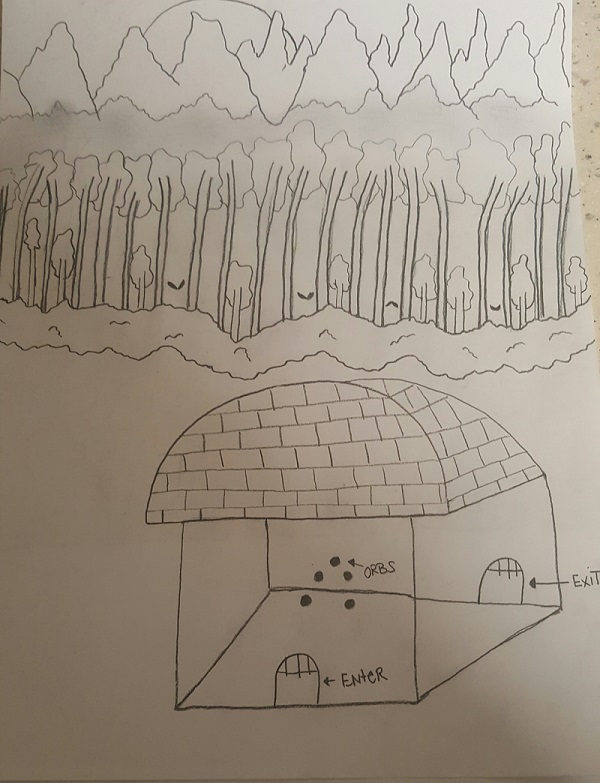 ORBS
EXIT
ENtER